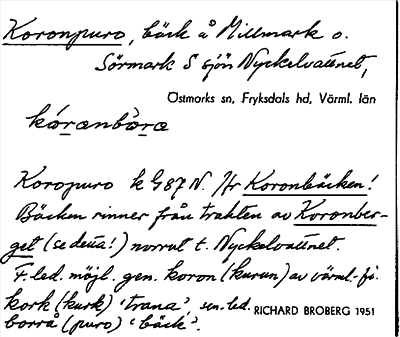 Koronpuro, bäck å Millmark o.
Sörmark S sjön Nyckelvattnet,
Östmarks sn, Fryksdals hd, Värml. län
kóranbòra
Koropuro k G 87 N. Jfr Koronbäcken!
Bäcken rinner från trakten av Koronber-
get (se detta!) norrut t. Nyckelvattnet.
F. led. möjl. gen. koron (kurun) av värml.-fi.
kork (kurk) 'trana', sen. led.
borrå (puro) 'bäck'.
RICHARD BROBERG 1951